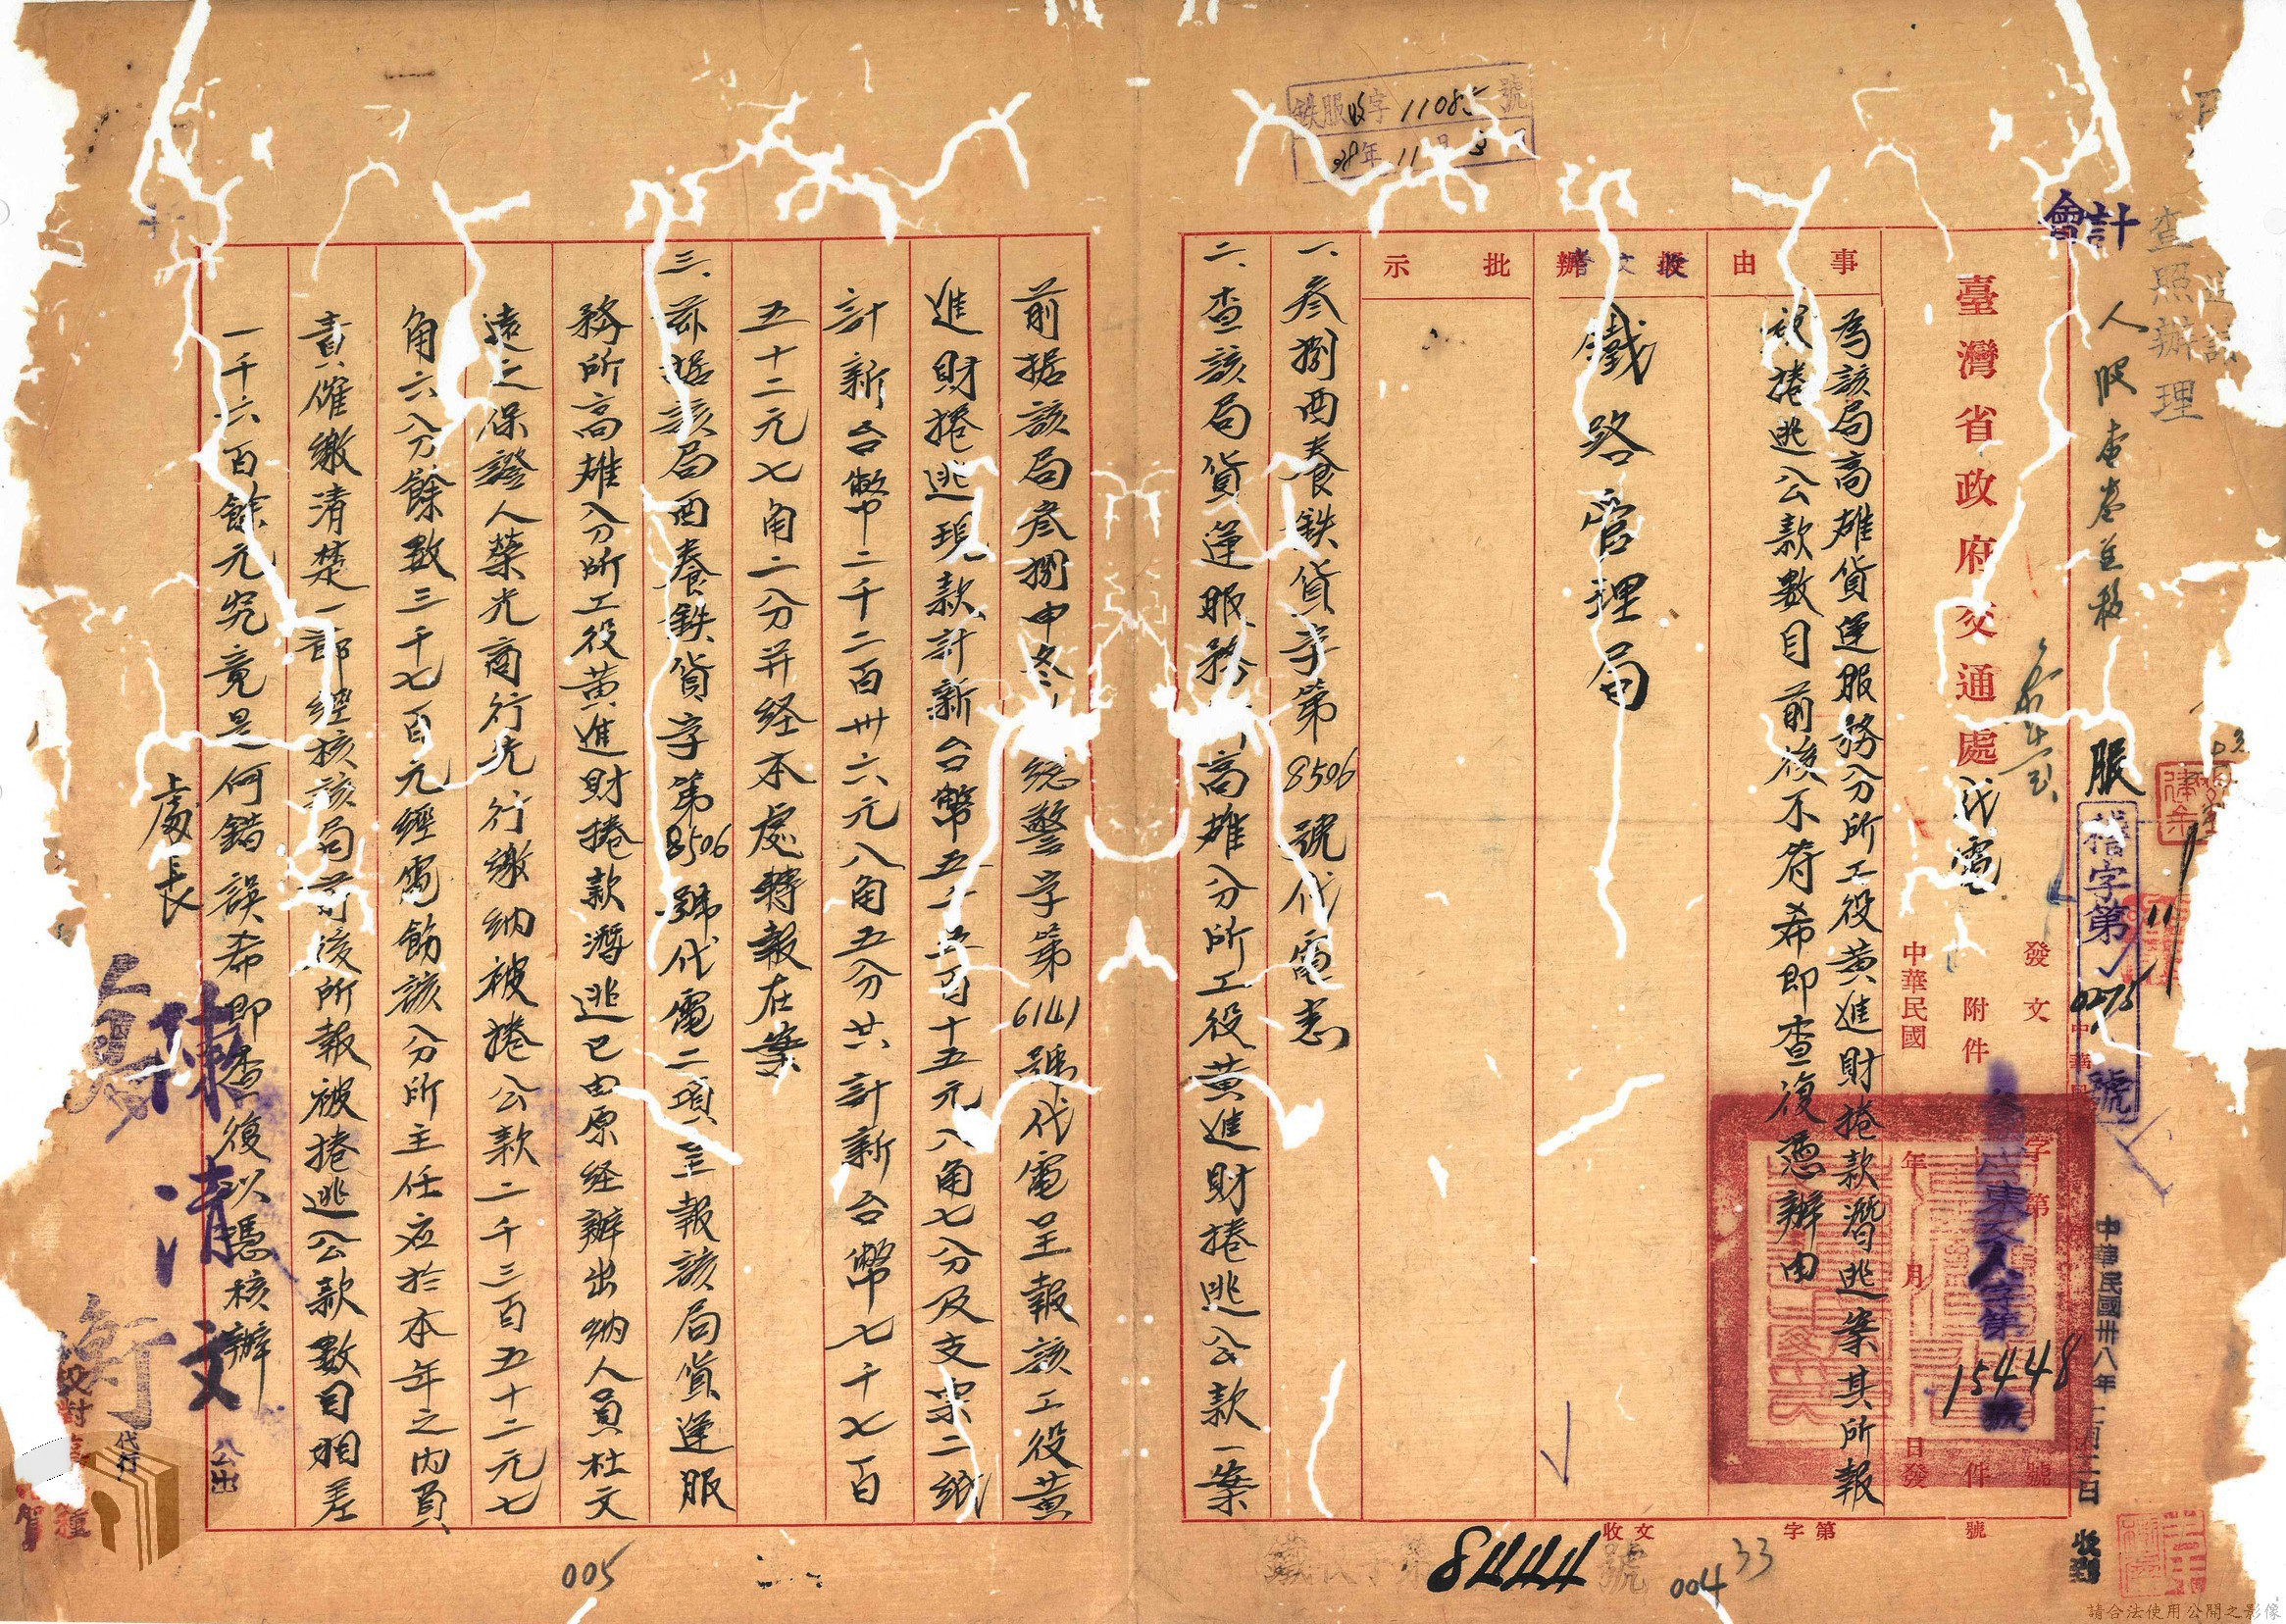 鉄服收字11085號
38年11月3日
會計
查照辦理
臺灣省政府交通處代電
發文 字第 號
附件 件
中華民國 年 月 日發
15448
號
服
0275
號
中華民國卅八年
收到
事由
為該局高雄貨運服務分所工役黃進財捲款潛逃案其所報
被捲逃公款數目前後不符希即查復憑辦由
批示
鐵路管理局
一、叁捌酉養鉄貨字第8506號代電悉
二、查該局貨運服務所高雄分所工役黃進財捲逃公款一案
前据該局叁捌申冬 總警字第6141號代電呈報該工役黃
進財捲逃現款計新台幣五千五百十五元八角七分及支票二紙
計新台幣二千二百卅六元八角五分共計新台幣七千七百
五十二元七角二分并経本處轉報在案
三、茲据該局酉養鉄貨字第8506號代電二項呈報該局貨運服
務所高雄分所工役黃進財捲款潛逃已由原経辦出納人員杜文
遠之保證人榮光商行先行繳納被捲公款二千三百五十二元七
角六分餘數三千七百元經電飭該分所主任应於本年之内負
責催繳清楚一部經核該局前後所報被捲逃公款數目相差
一千六百餘元究竟是何錯誤希即查復以憑核辦
處長
陳清文
公出
代行
號
8444
收文 字第 號
004
33
005
請合法使用公開之影像